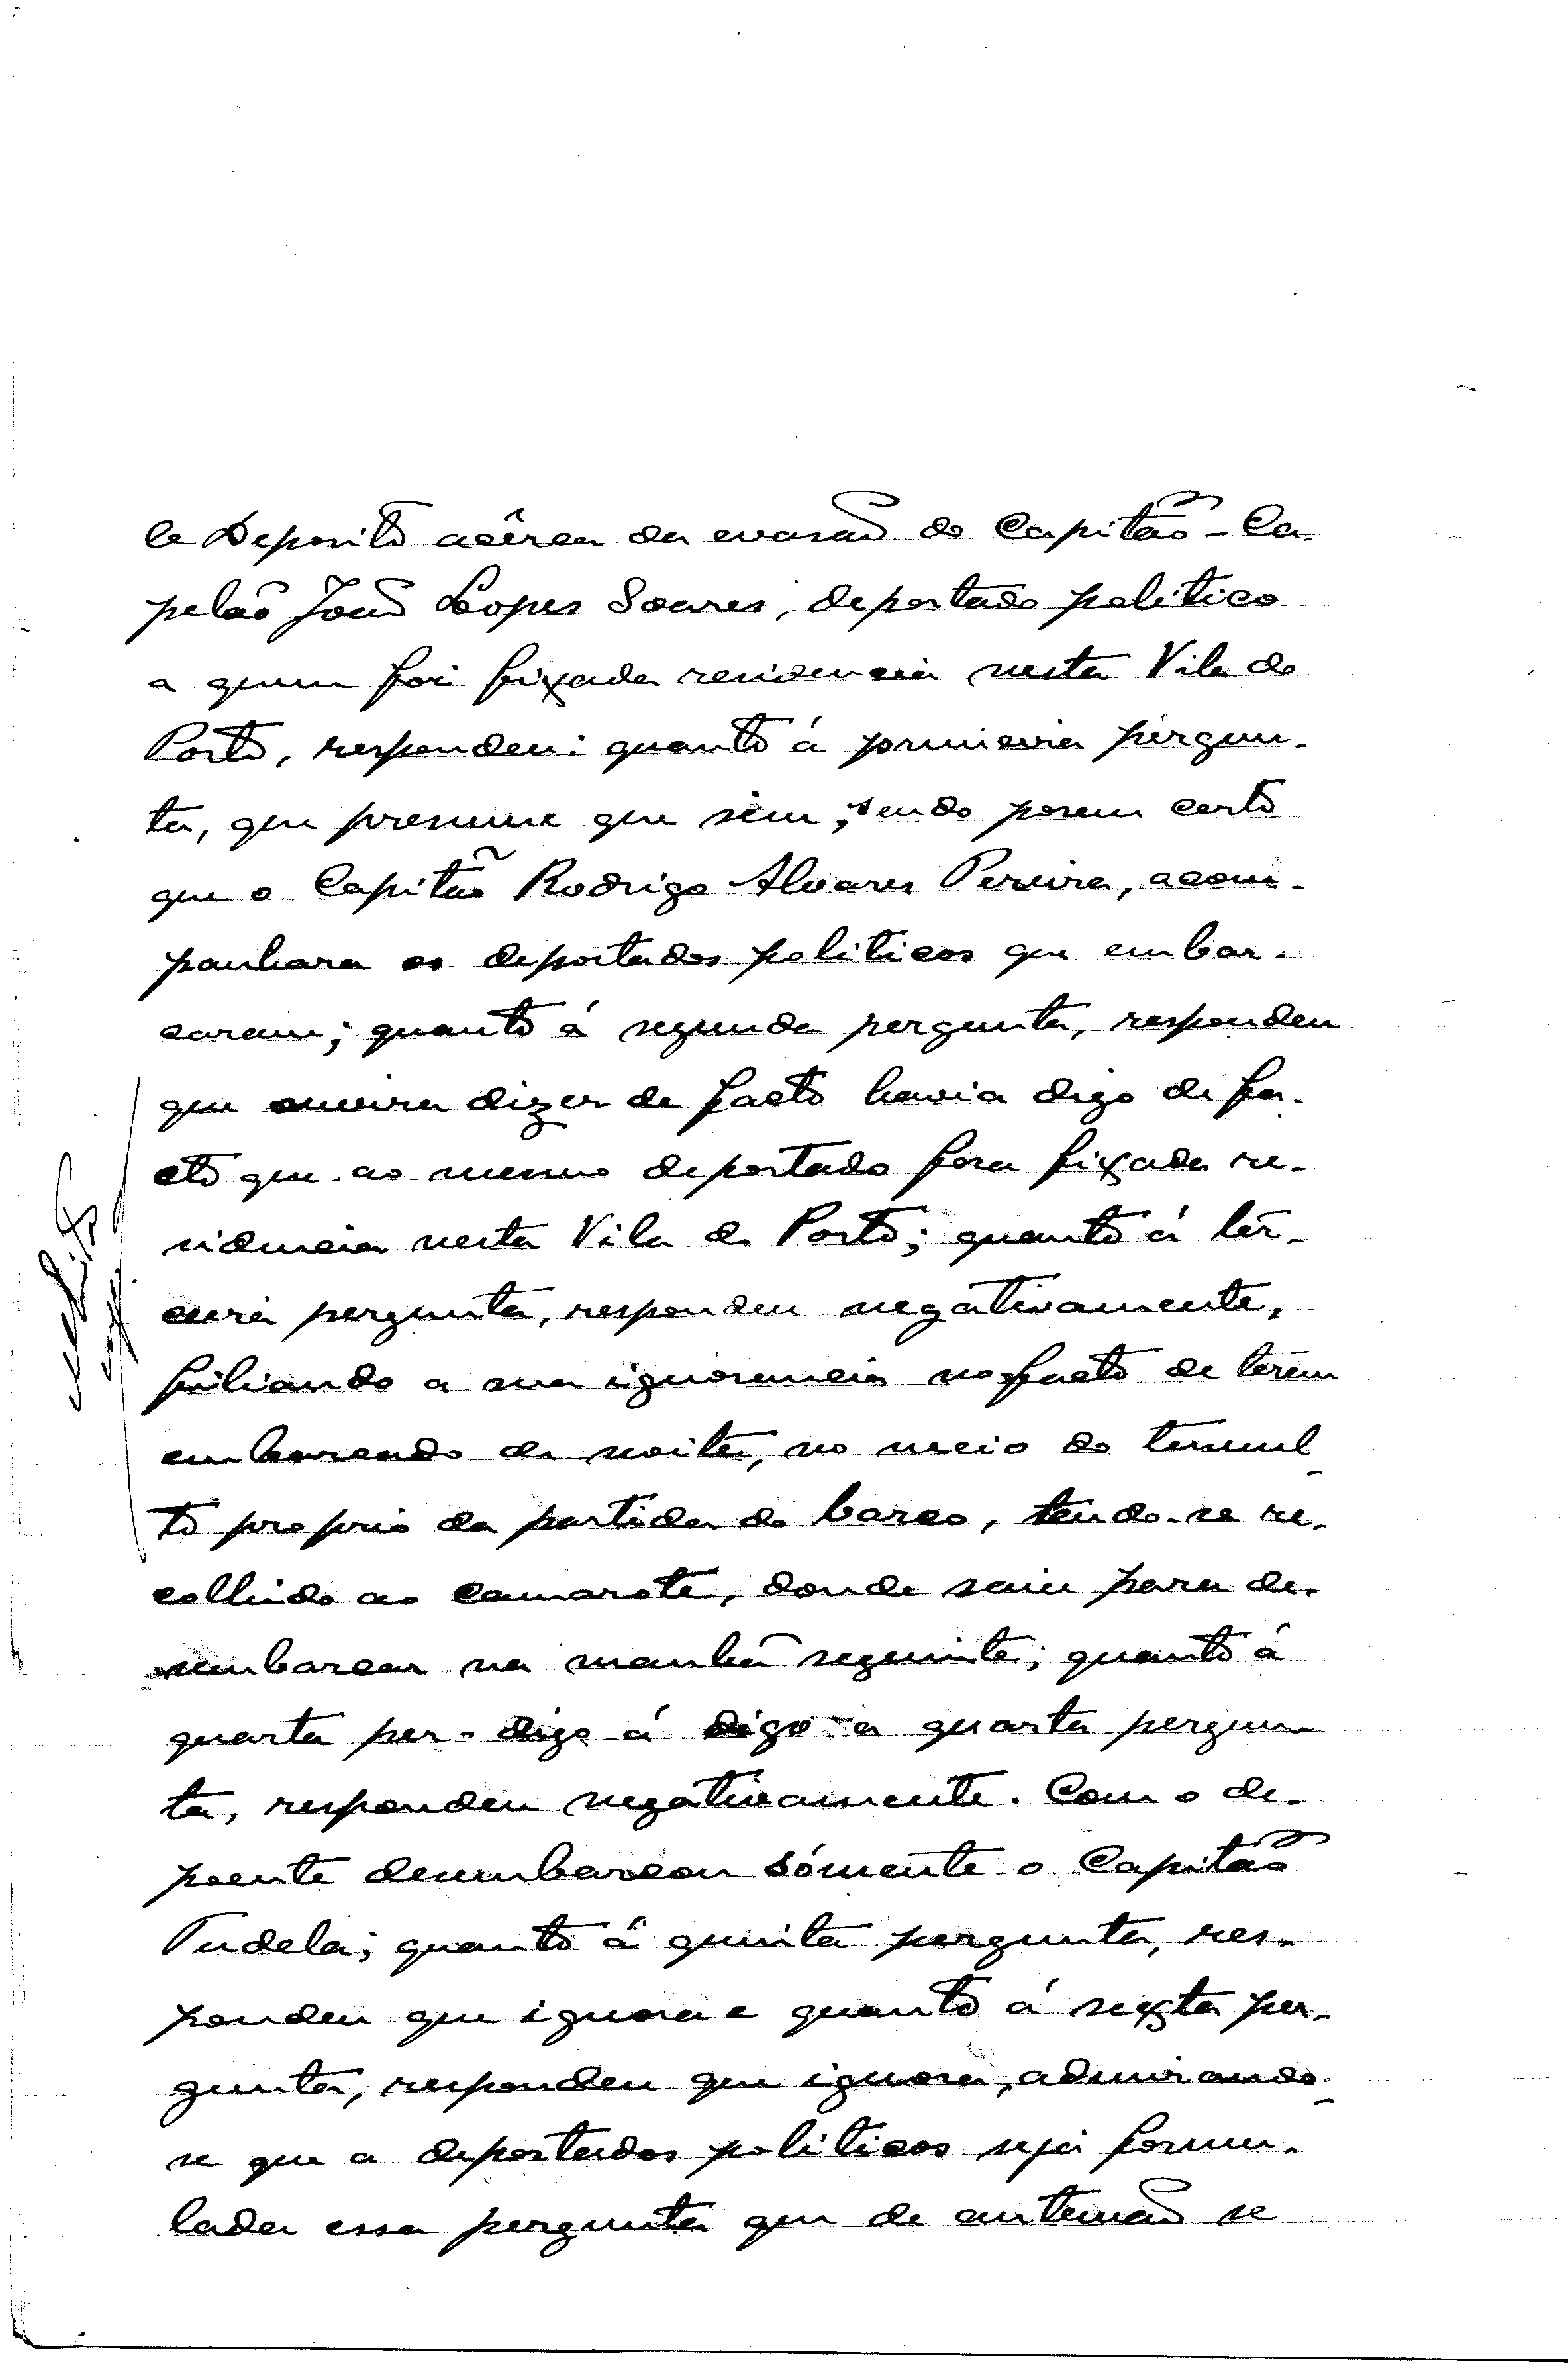 le Deposito acêrca da evasão do Capitão-Ca-
pelão João Lopes Soares, deportado politico
a quem foi fixada residencia nesta Vila do
Porto, respondeu: quanto á primeira pergun-
ta, que presume que sim; sendo porem certo
que o Capitão Rodrigo Alvares Pereira, acom-
panhara os deportados politicos que embar-
caram; quanto á segunda pergunta, respondeu
que ouvira dizer de facto havia digo de fa-
cto que ao mesmo deportado fora fixada re-
sidencia nesta Vila do Porto; quanto á ter-
ceira pergunta, respondeu negativamente,
filiando a sua ignorancia no facto de terem
embarcado de noite, no meio do tumul-
to proprio da partida do barco, tendo-se re-
colhido ao camarote, donde saiu para de-
sembarcar na manhã seguinte; quanto á
quarta per- digo á digo a quarta pergun-
ta, respondeu negativamente. Com o de-
poente desembarcou sómente o Capitão
Tudela; quanto á quinta pergunta, res-
pondeu que ignora e quanto á sexta per-
gunta, respondeu que ignora, admirando-
se que a deportados politicos seja formu-
lada essa pergunta que de antemão se